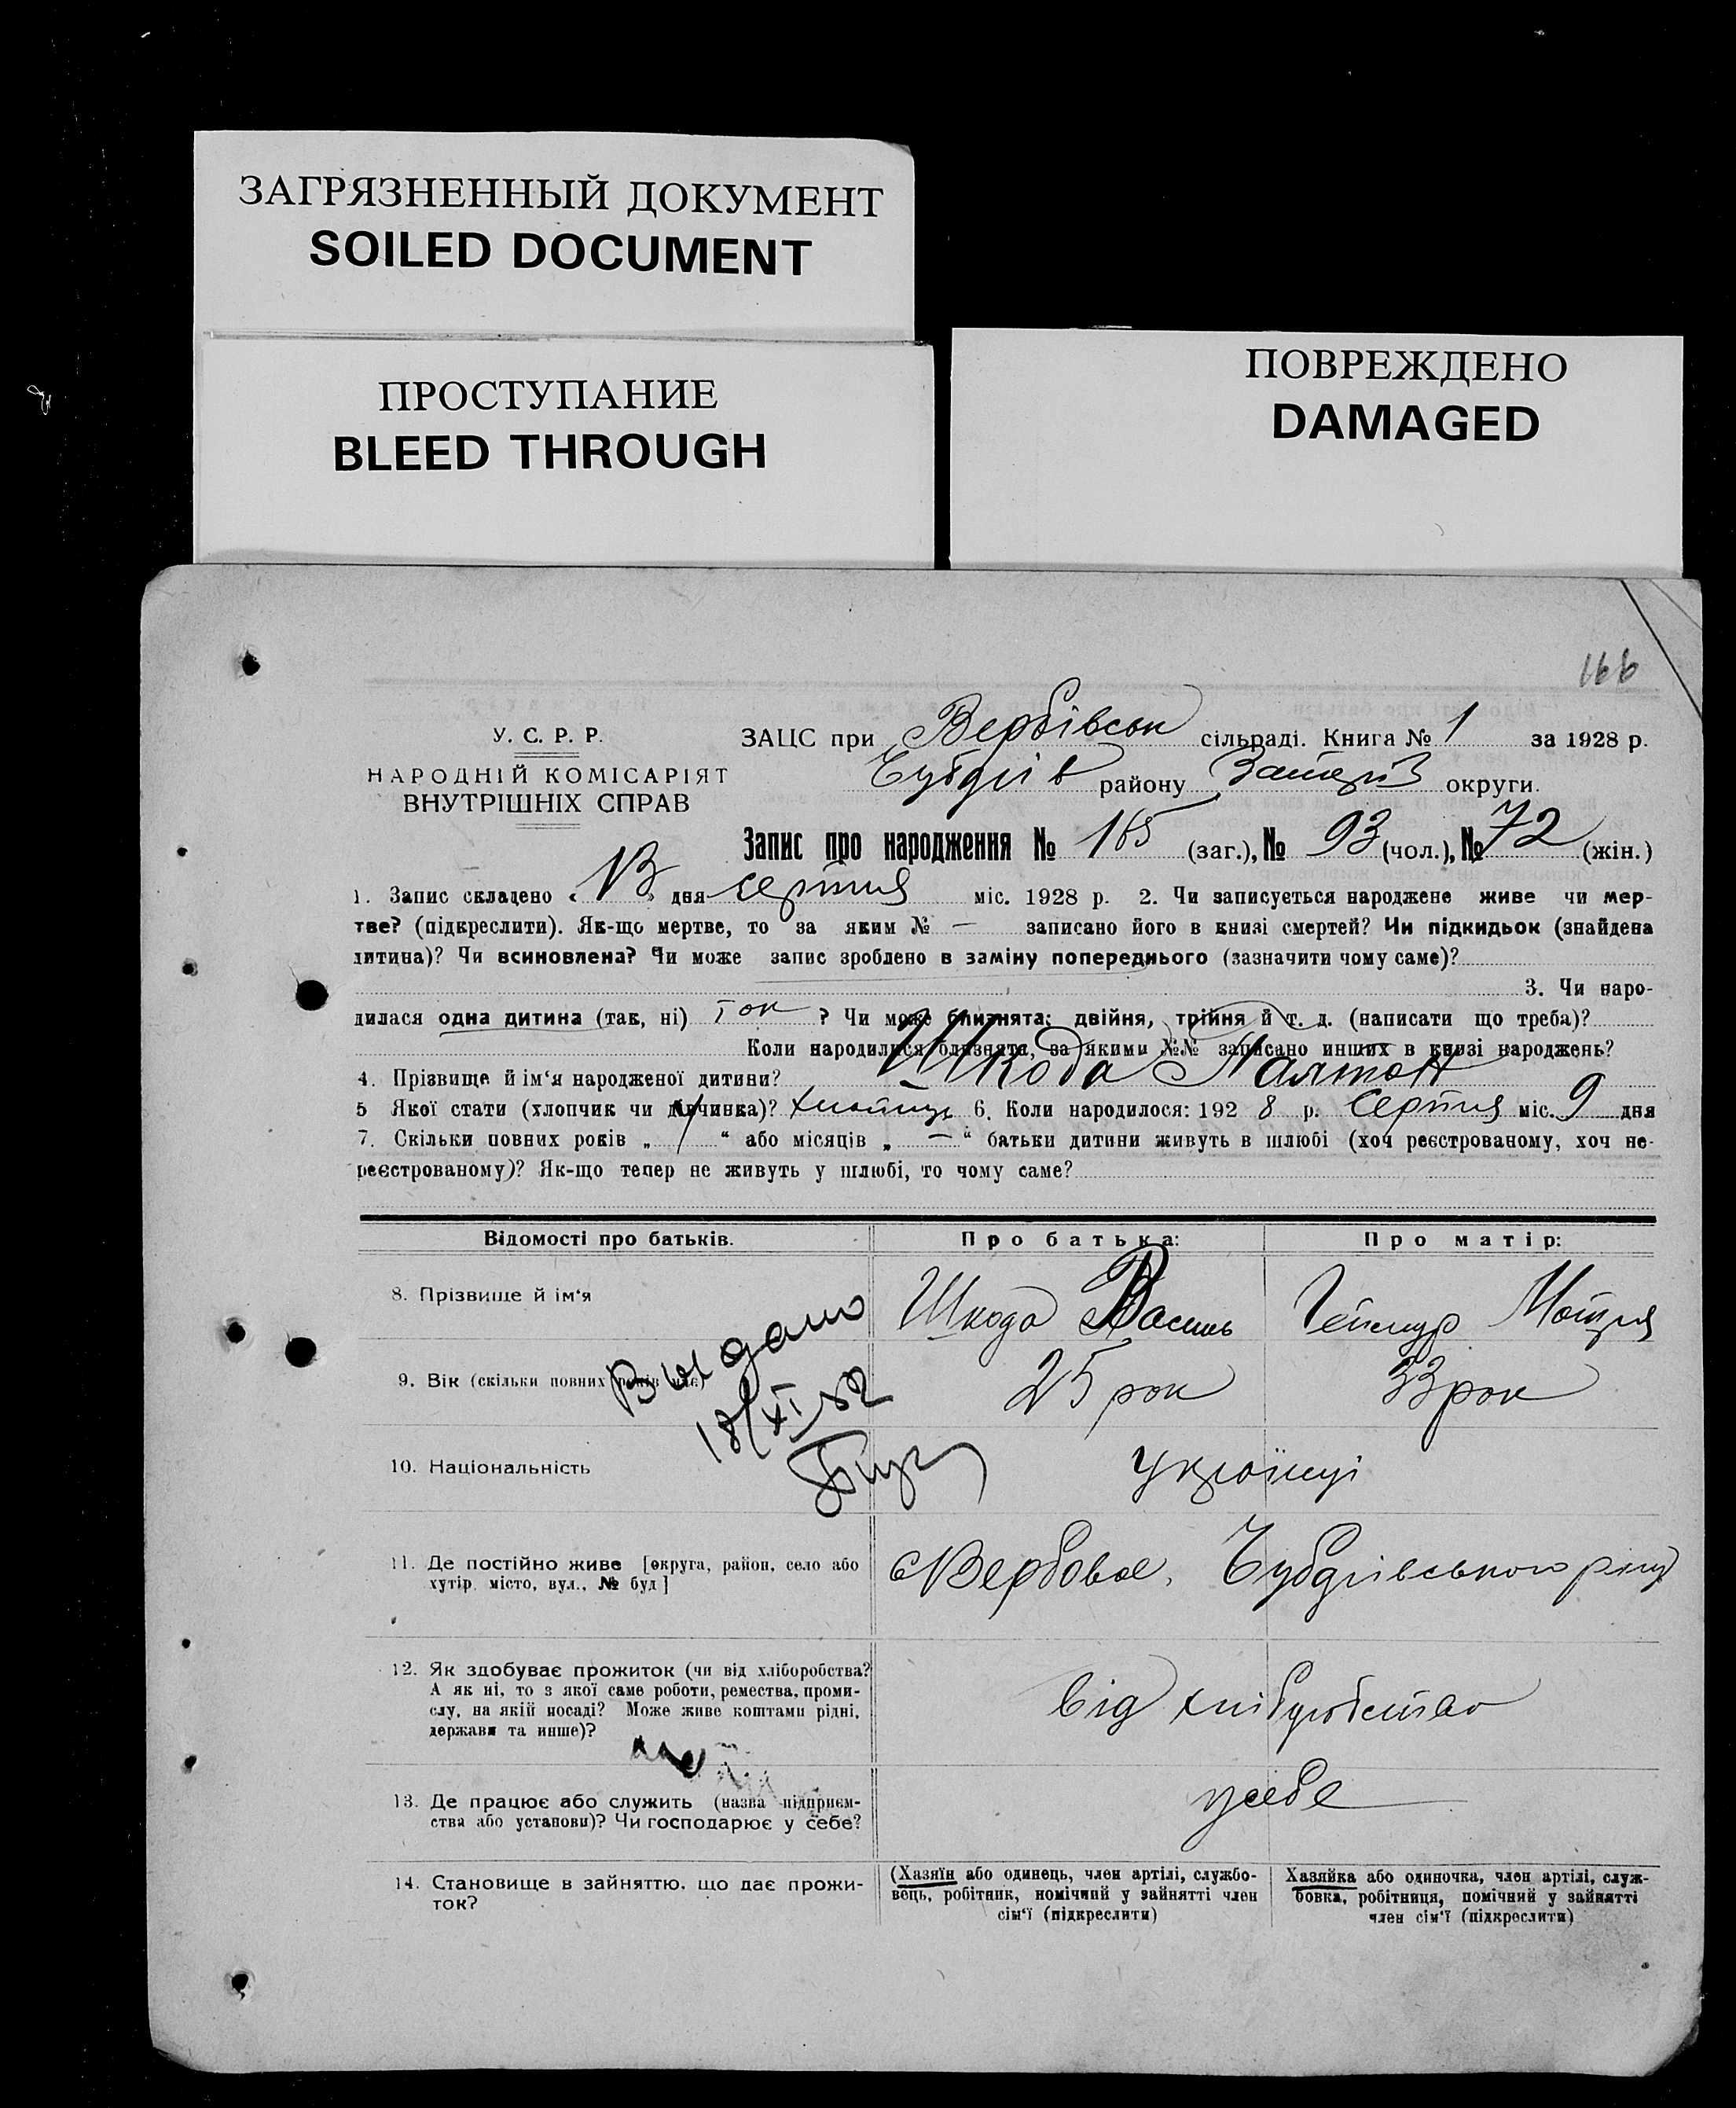 ЗАГРЯЗНЕННЫЙ ДОКУМЕНТ
SOILED DOCUMENT
ПРОСТУПАНИЕ
BLEED THROUGH
ПОВРЕЖДЕНО
DAMAGED
166
У. С. Р. Р.
НАРОДНІЙ КОМІСАРІЯТ
ВНУТРІШНІХ СПРАВ
ЗАЦС при Вербівськ сільраді. Книга № 1 за 1928 р.
району округи.
Запис про народження № 165 (заг.), № 93 (чол.), № 72 (жін.)
1. Запис складено « 13 » дня серпня міс. 1928 р. 2. Чи записується народжене живе чи мер-
тве? (підкреслити). Як-що мертве, то за яким № — записано його в книзі смертей? Чи підкидьок (знайдена
дитина)? Чи всиновлена? Чи може запис зроблено в заміну попереднього (зазначити чому саме)?
3. Чи наро-
дилася одна дитина (так, ні) так ? Чи може близнята: двійня, трійня й т. д. (написати що треба)?
Коли народилися близнята, за якими №№ записано инших в книзі народжень?
4. Прізвище й ім‘я народженої дитини? Шкода
5 Якої стати (хлопчик чи дівчинка)? хлопчик 6. Коли народилося: 192 8 р. Серпня міс. 9 дня
7. Скільки повних років „ 1 “ або місяців „ — “ батьки дитини живуть в шлюбі (хоч реєстрованому, хоч не-
реєстрованому)? Як-що тепер не живуть у шлюбі, то чому саме?
Відомості про батьків. Про батька: Про матір:
8. Прізвище й ім‘я Шкода Василь Мотря
Выдано
9. Вік (скільки повних років має) 25 рок 33 рок
18/XI 52
10. Національність Українці
11. Де постійно живе [округа, район, село або
хутір, місто, вул., № буд]
Вербове, Чубарівського р-ну
12. Як здобуває прожиток (чи від хліборобства?
А як ні, то з якої саме роботи, ремества, проми-
слу, на якій посаді? Може живе коштами рідні,
держави та инше)?
від хліборобства
13. Де працює або служить (назва підприєм-
ства або установи)? Чи господарює у себе?
у себе
14. Становище в зайняттю, що дає прожи-
ток?
(Хазяїн або одинець, член артілі, службо-
вець, робітник, помічний у зайнятті член
сім‘ї (підкреслити)
Хазяйка або одиночка, член артілі, служ-
бовка, робітниця, помічний у зайнятті
член сім‘ї (підкреслити)